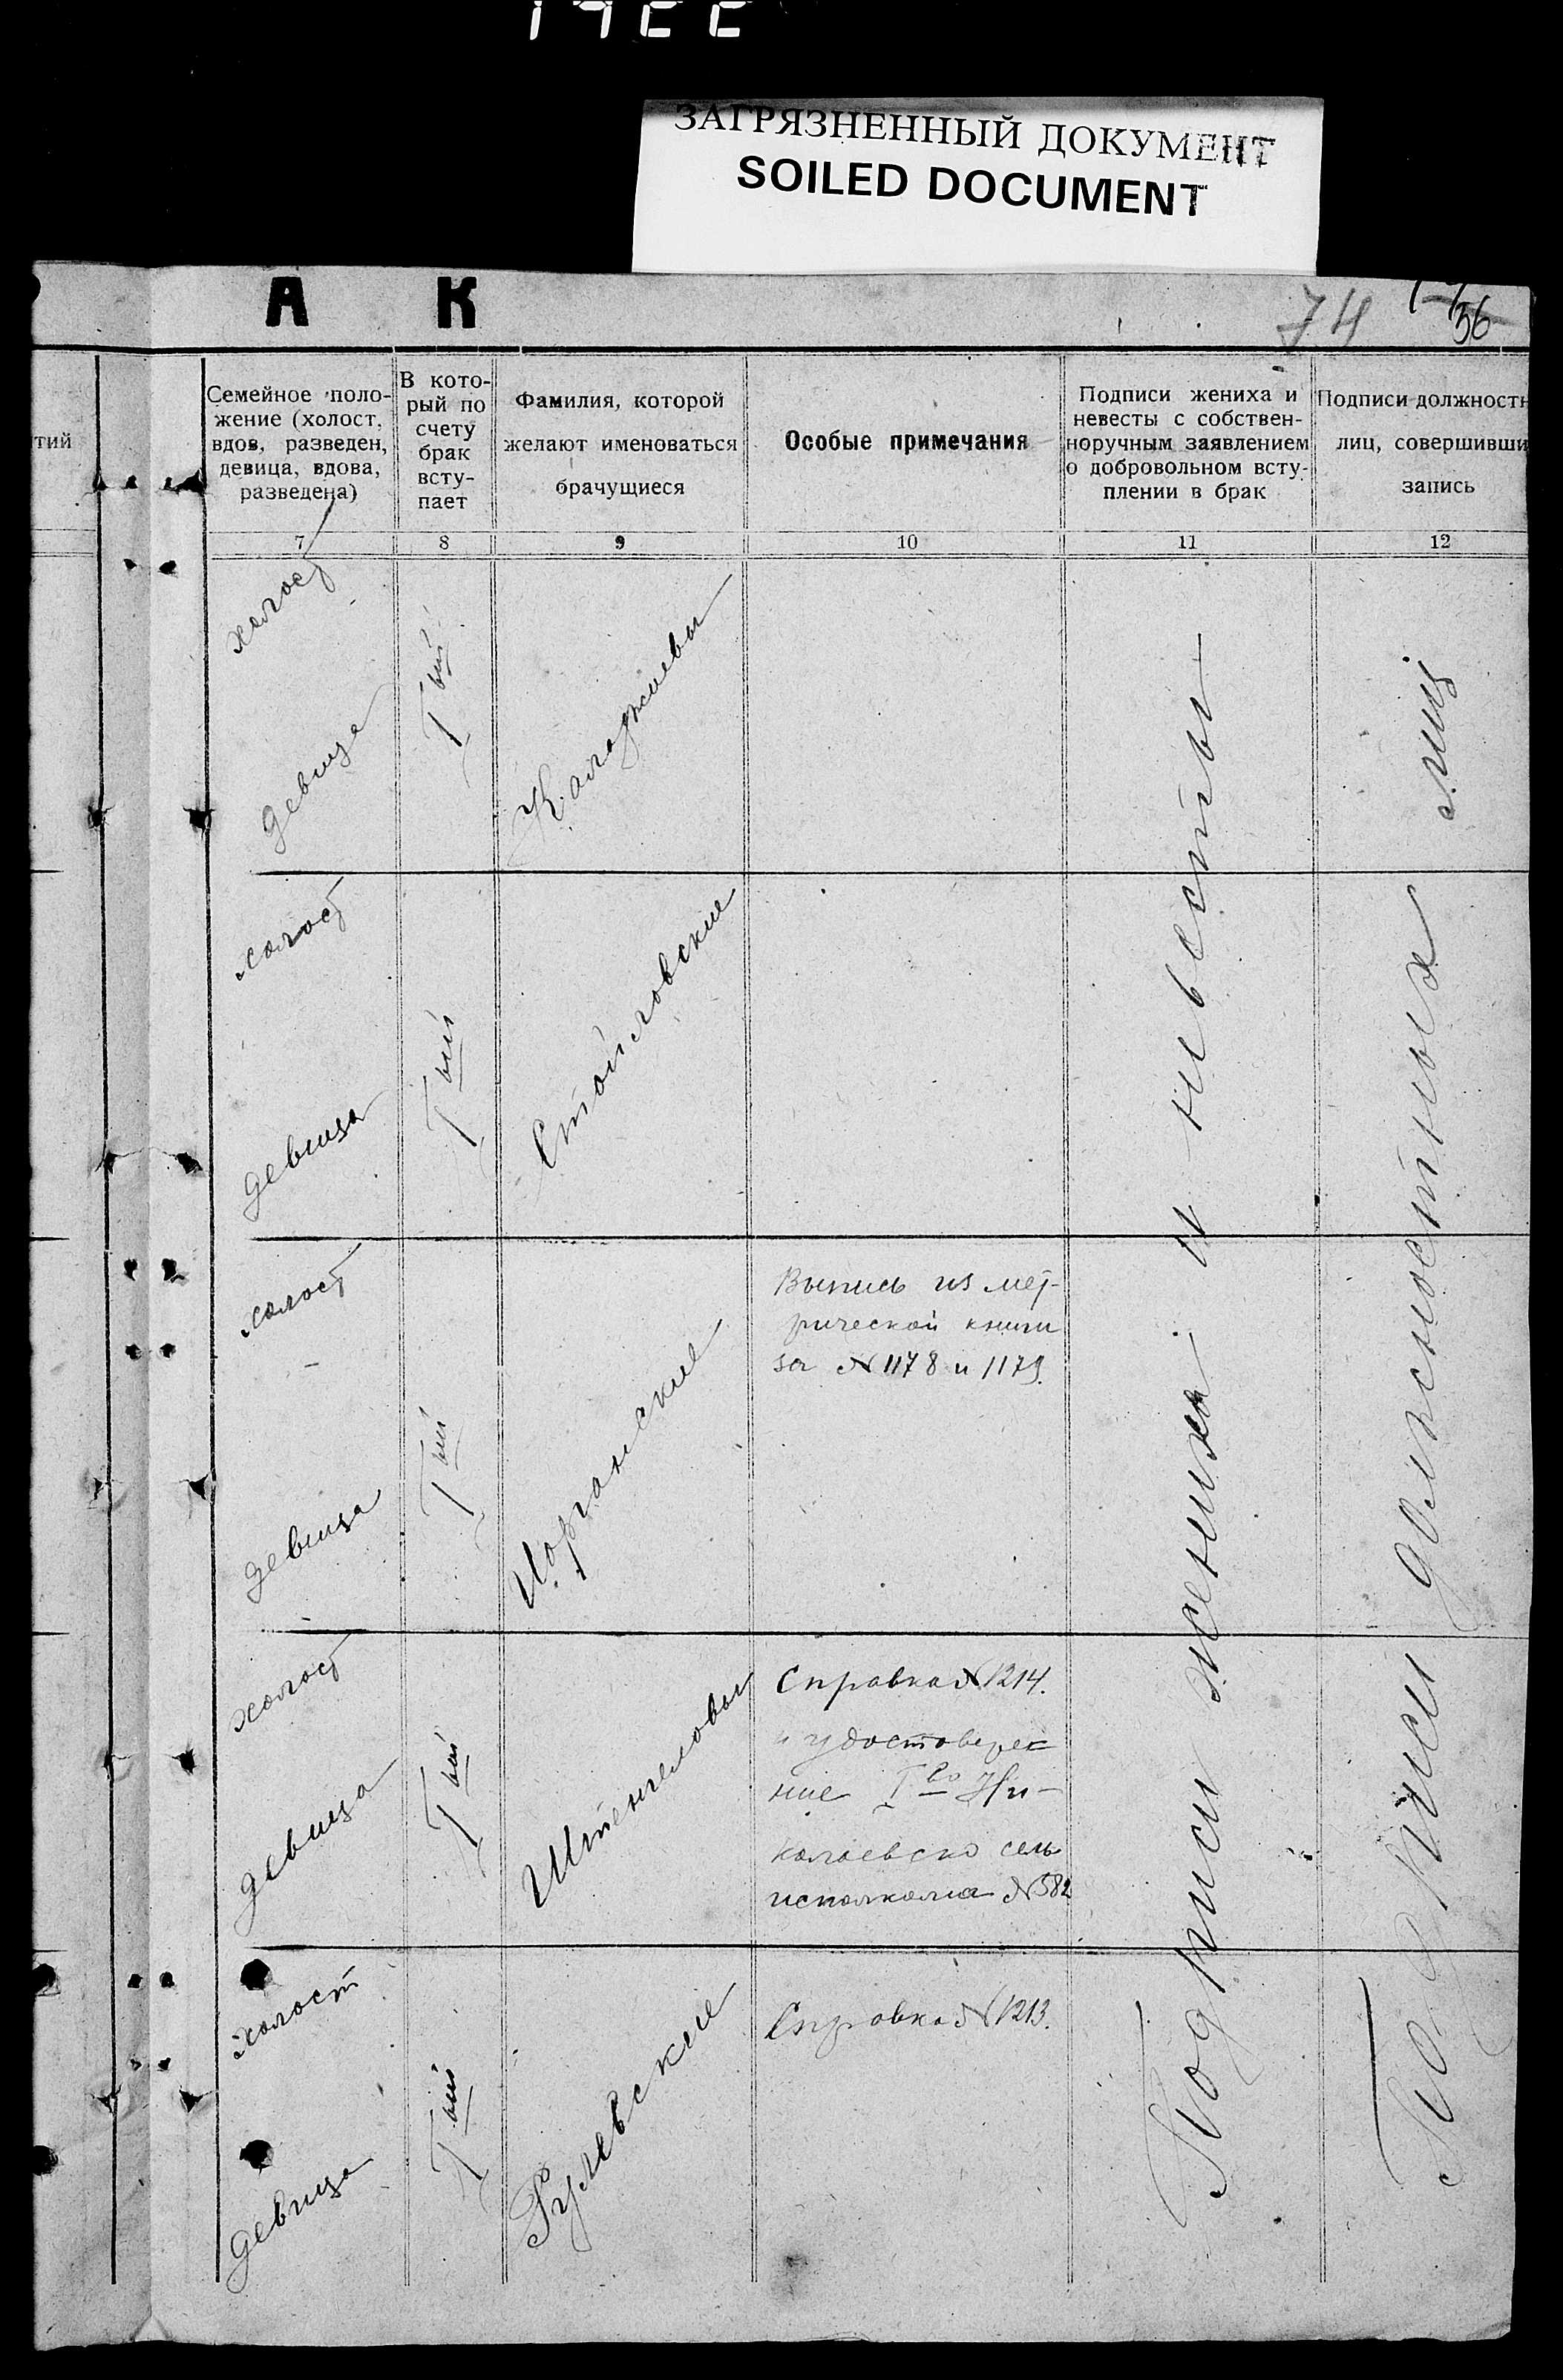 ЗАГРЯЗНЕННЫЙ ДОКУМЕНТ
SOILED DOCUMENT
А К
74
56
тий
Семейное поло-
жение (холост,
вдов, разведен,
девица, вдова,
разведена)
В кото-
рый по
счету
брак
всту-
пает
Фамилия, которой
желают именоваться
брачущиеся
Особые примечания
Подписи жениха и
невесты с собствен-
норучным заявлением
о добровольном всту-
плении в брак
Подписи должностн
лиц, совершивши
запись
7 8 9 10 11 12
холост
девица
I ый
холост
девица
I ый
Стойловские
холост
девица
I ый
Выпись из мет-
рической книги
за №1178 и 1179.
холост
девица
I ый
Штенгеловы
Справка №1214.
и удостовере-
ние I го Ни-
колаевско сель
исполкома №582
холост
девица
I ый
Рулевские
Справка №1213.
Подписи жениха и невесты
Подписи должностных лиц